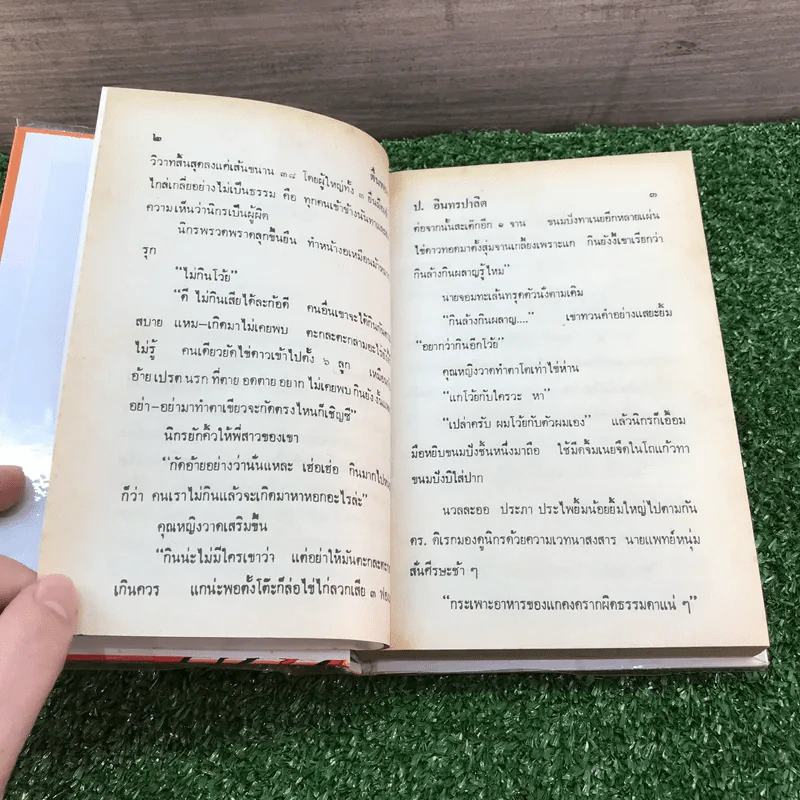 ๒
วิวาทสิ้นสุดลงแค่เส้นขนาน ๓๘ โดยผู้ใหญ่ทั้ง ๓ ยื่นมือเข้า
ไกล่เกลี่ยอย่างไม่เป็นธรรม คือ ทุกคนเข้าข้างนันทาและลง
ความเห็นว่านิกรเป็นผู้ผิด
นิกรพรวดพราดลุกขึ้นยืน ทำหน้างอเหมือนม้าหมาก
รุก
“ไม่กินโว้ย”
“ดี ไม่กินเสียได้ละก้อดี คนอื่นเขาจะได้กินกัน
สบาย แหม–เกิดมาไม่เคยพบ ตะกละตะกลามอะไรยังงี้ก็
ไม่รู้ คนเดียวยัดไข่ดาวเข้าไปตั้ง ๖ ลูก
อ้ายเปรต นรก ที่ตาย อดตาย อยาก ไม่เคยพบ กินยัง งั้น
อย่า–อย่ามาทำตาเขียวจะกัดตรงไหนก็เชิญซี”
นิกรยักคิ้วให้พี่สาวของเขา
“กัดอ้ายอย่างว่านั่นแหละ เฮ่อเฮ่อ กินมากไป
ก็ว่า คนเราไม่กินแล้วจะเกิดมาหาหอกอะไรล่ะ”
คุณหญิงวาดเสริมขึ้น
“กินน่ะไม่มีใครเขาว่า แต่อย่าให้มันตะกละตะกลาม
เกินควร แกน่ะพอตั้งโต๊ะก็ล่อไข่ไก่ลวกเสีย ๓ ฟอง
ป. อินทรปาลิต ๓
ต่อจากนั้นสะเต๊กอีก ๑ จาน ขนมปังทาเนยอีกหลายแผ่น
ไข่ดาวทอดมาตั้งสุ่มจานเกลี้ยงเพราะแก กินยังงี้เขาเรียกว่า
กินล้างกินผลาญรู้ไหม”
นายจอมทะเล้นทรุดตัวนั่งตามเดิม
“กินล้างกินผลาญ....” เขาทวนคำอย่างแสยะยิ้ม
“อยากว่ากินอีกโว้ย”
คุณหญิงวาดทำตาโตเท่าไข่ห่าน
“แกโว้ยกับใครวะ หา”
“เปล่าครับ ผมโว้ยกับตัวผมเอง” แล้วนิกรก็เอื้อม
มือหยิบขนมปังชิ้นหนึ่งมาถือ ใช้มีดจิ้มเนยจืดในโถแก้วทา
ขนมปังปิใส่ปาก
นวลละออ ประภา ประไพยิ้มน้อยยิ้มใหญ่ไปตามกัน
ดร. ดิเรกมองดูนิกรด้วยความเวทนาสงสาร นายแพทย์หนุ่ม
สั่นศีรษะช้า ๆ
“กระเพาะอาหารของแกคงครากผิดธรรมดาแน่ ๆ”